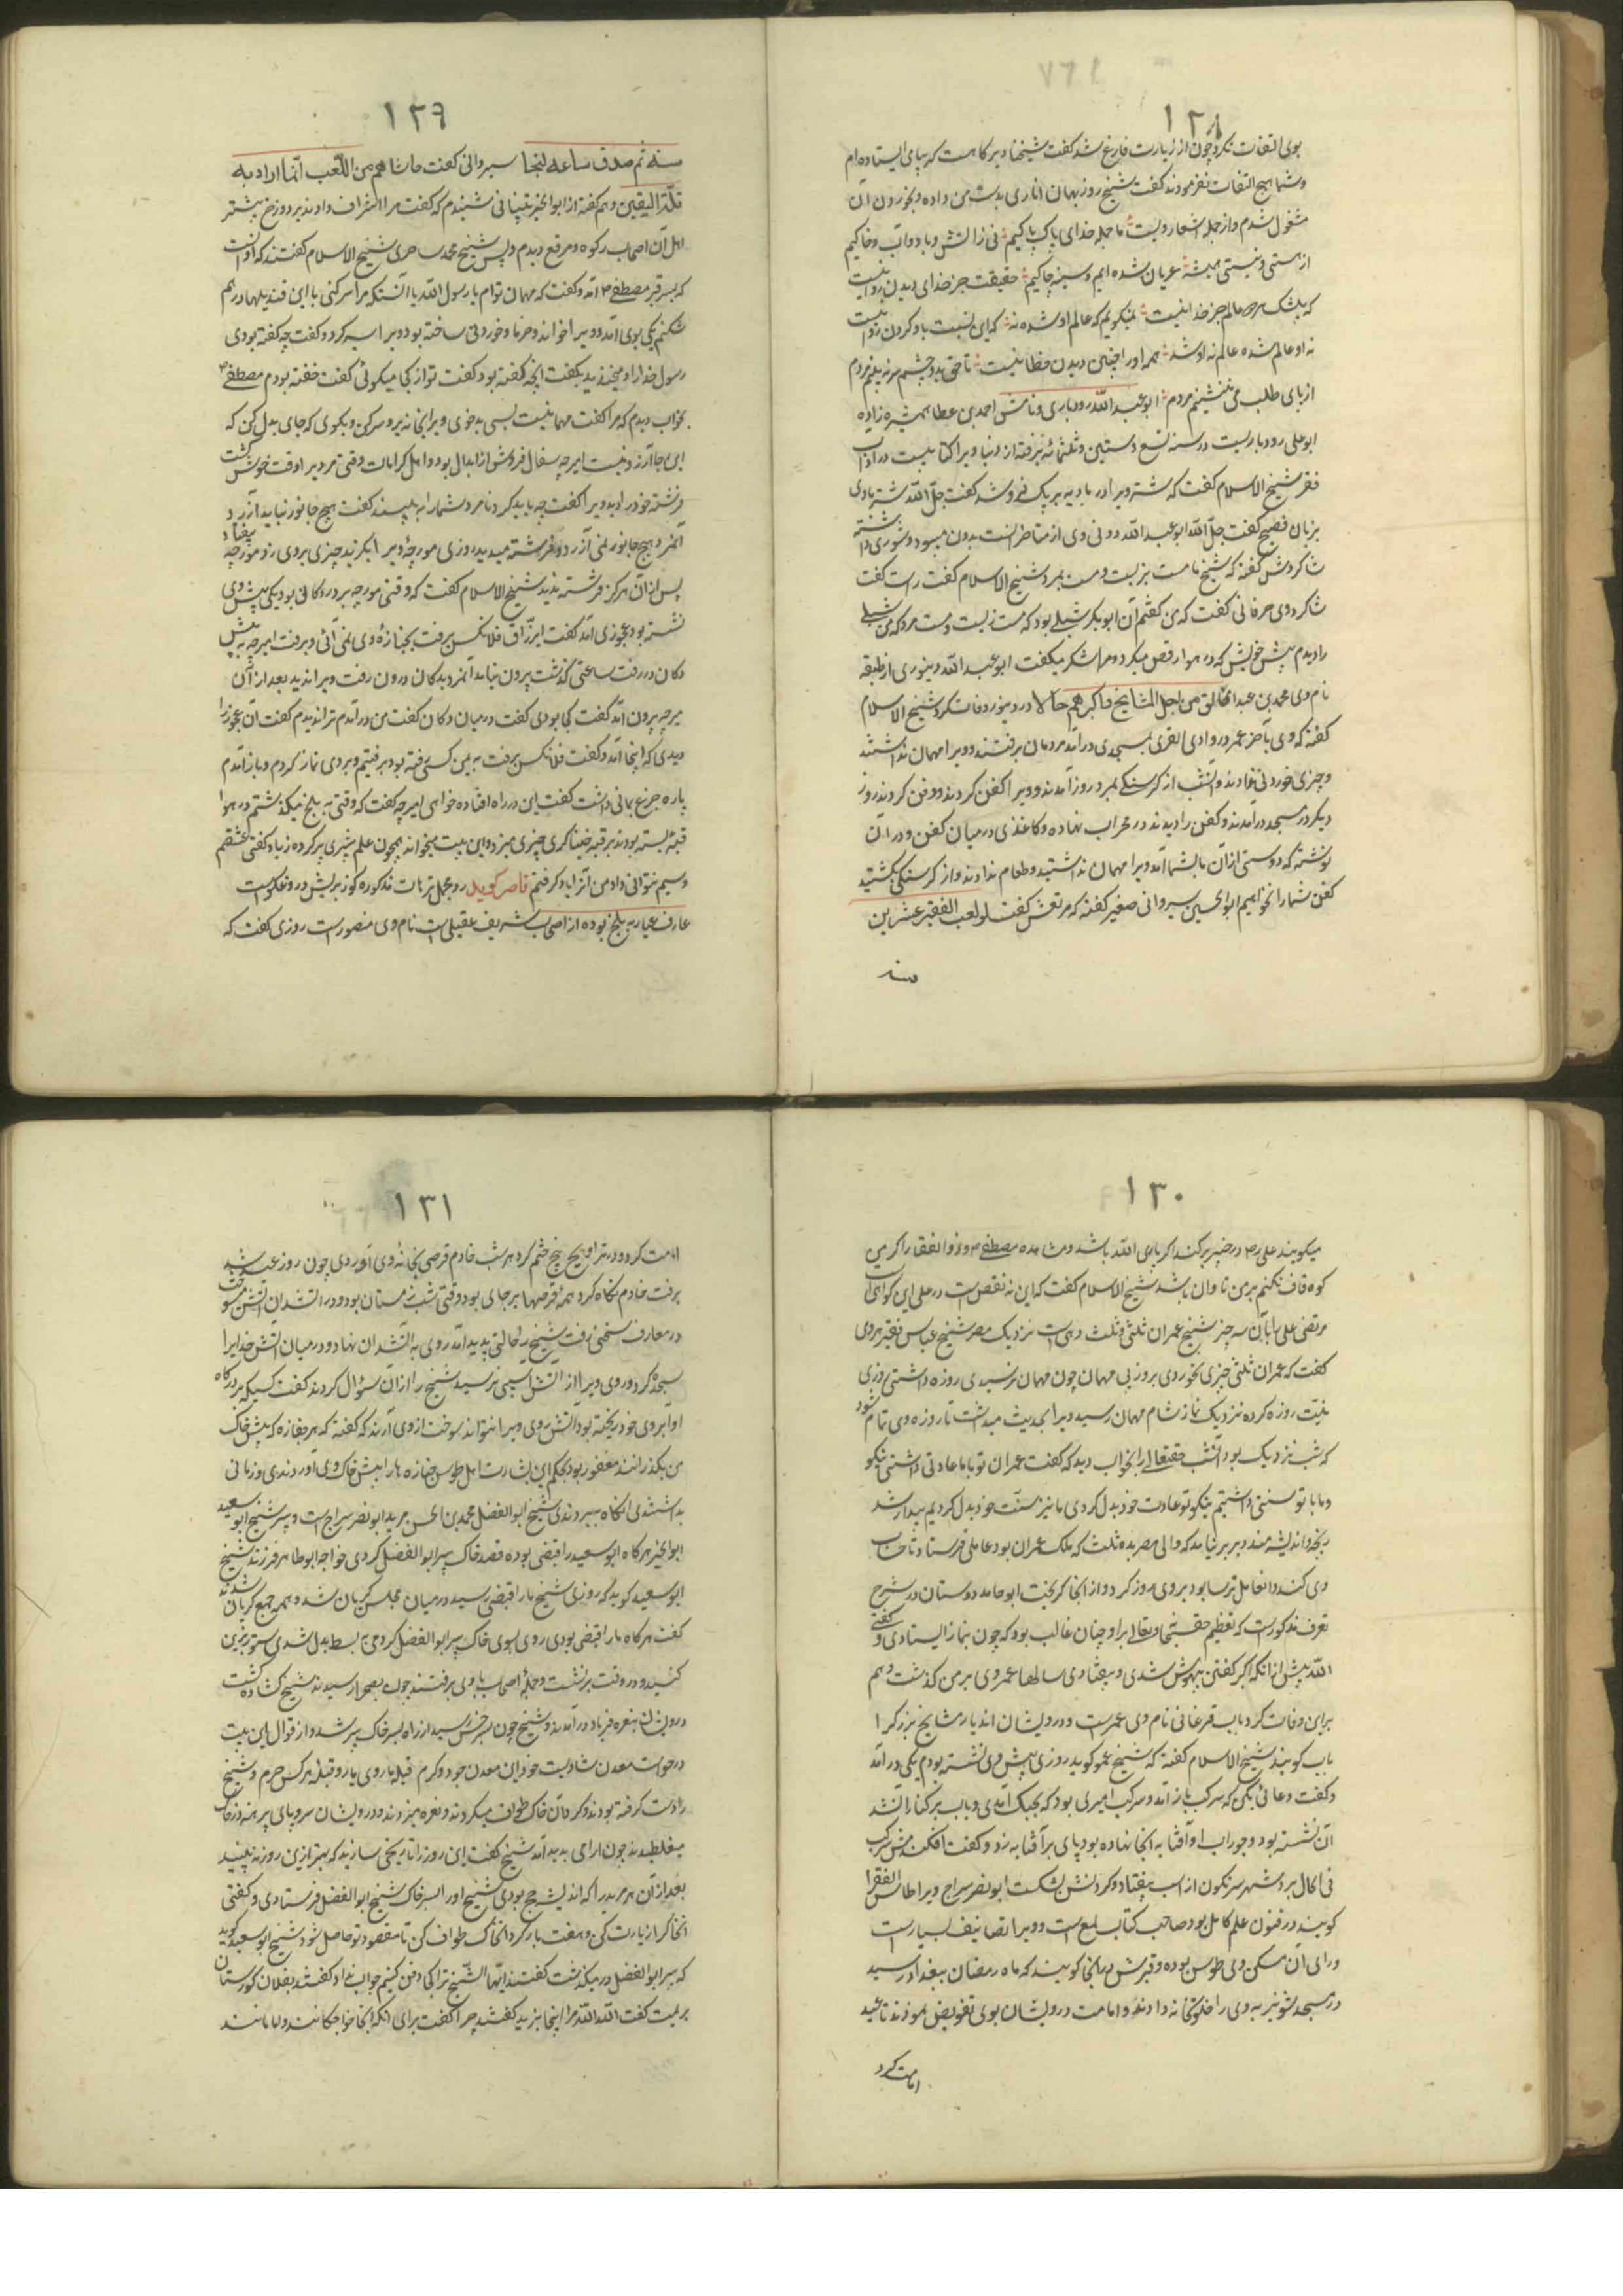 ١٢٨
بوی التفات نکرد چون از زیارت فارغ شد گفت شیخا دیرگاهست که بپای ایستاده‌ام
و شما هیچ التفات نفرمودند گفت شیخ روزبهان اناری بدست من داده و بخوردن آن
مشغول شدم و از جمله اشعار ویست ما جمله خدای پاک پاکیم نی ز آتش و باد و آب و خاکیم
از هستی و نیستی همیشه عریان شده‌ایم و سینه چاکیم حقیقت جز خدای دیدن روا نیست
که بیشک هر دو عالم جز خدا نیست نمیگویم که عالم او شده نه که این نسبت باو کردن روا نیست
نه او عالم شده عالم نه او شد همه او را چنین دیدن خطا نیست تا حق بدو چشم سر نه بینم هر دم
از پای طلب می ننشینم هر دم ابوعبد الله رودباری و نامش احمد بن عطا همشیره‌زاده
ابوعلی رودباریست در سنه تسع و ستین و ثلثمائه برفته از دنیا ویرا کتابیست در آداب
فقر شیخ الاسلام گفت که شتر ویرا در بادیه بریک فرو شد گفت جلّ الله شتر با وی
بزبان فصیح گفت جلّ الله ابوعبد الله
شاگردش گفته که شیخ ما مست بزیست و مست بمرد شیخ الاسلام گفت راست گفت
شاگرد وی صرفانی گفت که من گفتم آن ابوبکر شبلی بود که مست زیست و مست مرد که من شبلی
را دیدم پیش خویش که در هوا رقص میکرد و مرا شکر میگفت ابوعبد الله دینوری از طبقه
نام وی محمد بن عبد الخالق من اجلّ المشایخ و اکبرهم حالا در دینور وفات کرد شیخ الاسلام
گفته که وی بآخر عمر در وادی القری بمسجدی درآمد مردمان برفتند و ویرا مهمان نداشتند
و چیزی خوردنی ندادند و آنشب از گرسنگی بمرد روز آمدند و ویرا کفن کردند و دفن کردند روز
دیگر در مسجد درآمدند و کفن را دیدند در محراب نهاده و کاغذی در میان کفن و در آن
نوشته که دوستی از آن ما بشما آمد ویرا مهمان نداشتید و طعام ندادند و از گرسنگی بکشتید
کفن شما را نخواهیم ابوالحسین سیروانی صغیر گفته که مرتعش گفت لو لعب الفقیر عشرین
سنه
١٢٩
سنه ثم صدق ساعه لنجا سیروانی گفت حاشاهم من اللّعب انّما اراد به
قلّة الیقین و هم گفته از ابوالخیر تیناتی شنیدم که گفت مرا اشراف دادند بر دوزخ بیشتر
اهل آن اصحاب رکوه و مرقع دیدم وپس شیخ محمد ساخری شیخ الاسلام گفتند که اوانست
که بسر قبر مصطفی م آمد و گفت که مهمان توام یا رسول الله یا آنستکه مرا سیر کنی یا این قندیلها درهم
شکنم یکی بوی آمد و ویرا خواند و خرما و خوردنی ساخته بود ویرا سیر کرد و گفت چه گفته بودی
رسول خدا را و میخندید بگفت آنچه گفته بود گفت تو از کجا میگوئی گفت خفته بودم مصطفی م
بخواب دیدم که مرا گفت مهمانیست بسی بدخوی ویرا بخانه بر و سیر کن و بگوی که جای بدل کن که
این جا آرزو نیست امیرچه سفال فروش از ابدال بود و اهل کرامات وقتی مر ویرا وقت خوش گشت
فرشته خود را بدید ویرا گفت چه باید کرد تا مرد شما را به بیند گفت هیچ جانور نیازارد
آنمرد هیچ جانور نمی آزرد و فرشته میدید روزی مورچه ویرا بگزید چیزی بر وی زد مورچه بیفتاد
پس از آن هرگز فرشته ندید شیخ الاسلام گفت که وقتی مورچه بر در دکانی بود یکی پیش وی
نشسته بود عجوزی آمد گفت ای رزّاق فلان کس برفت بجنازه وی نمی آئی و برفت امیرچه به پیش
دکان در رفت ساعتی گذشت بیرون نیامد آنمرد بدکان درون رفت ویرا ندید بعد از آن
میرچه بیرون آمد گفت کجا بودی گفت در میان دکان گفت من درآمدم ترا ندیدم گفت آن عجوز را
دیدی که اینجا آمد و گفت فلان کس برفت به یمن کسی رفته بود برفتیم و بر وی نماز کردم و باز آمدم
پاره جزع یمانی داشت گفت این در راه افتاده خواهی امیرچه گفت که وقتی به بلخ میگذشتم در هوا
قبه بسته بودند بر قبه خیناگری چیزی میزد و این بیت میخواند همچون علم شیری پر کرده ز باد گفتی عشقم
و سیم نتوانی داد من از بی باد گرفتم قاصر گوید
عارف عیار به بلخ بوده از اصحاب شریف عقیلی است نام وی منصور است روزی گفت که
١٣٠
میگویند علی رض در خیبر بکند اگر یاری الله باشد و مشاهده مصطفی م و ذوالفقار اگر من
کوه قاف نکنم بر من تاوان باشد شیخ الاسلام گفت که این نه نقص است در علی این گواهی
مرتضی علی را بآن سه چیز شیخ عمران ثلثی و ثلث دهی است نزدیک مصر شیخ عباس فقیر هروی
گفت که عمران ثلثی چیزی نخوردی بروز بی مهمان چون مهمان نرسیدی روزه داشتی روزی
بنیّت روزه کرده نزدیک نماز شام مهمان رسید ویرا بحدیث میداشت تا روزه وی تمام شود
که شب نزدیک بود آنشب حقتعالی را بخواب دید که گفت عمران تو با ما عادتی داشتی نیکو
و ما با تو سنتی داشتیم نیکو تو عادت خود بدل کردی ما نیز سنّت خود بدل کردیم بیدار شد
رنجه و اندیشه‌مند دیر برنیامد که والی مصر بده ثلث که ملک عمران بود عاملی فرستاد تا حساب
وی کند و آنعامل ترسا بود بر وی زور کرد و از آنجا گریخت ابوحامد دوستان در شرح
تعرف مذکورست که تعظیم حق سبحانه و تعالی براو چنان غالب بود که چون بنماز ایستادی و گفتی
الله پیش از آنکه اکبر گفتی بیهوش شدی و بیفتادی سالها عمر وی بر من گذشت و هم
براین وفات کرد باب فرغانی نام وی عمرست و درویشان اندیار مشایخ بزرگ را
باب گویند شیخ الاسلام گفته که شیخ عمو گوید روزی پیش وی نشسته بودم یکی درآمد
و گفت دعائی بکن که سرکب باز آمد و سرکب امیری بود که بجنگ آمدی و باب بر کنار آتشد
آن نشسته بود و جوراب او آفتابه آنجا نهاده بود پای بر آفتابه زد و گفت افکندمش سرکب
فی الحال بر در شهر سرنگون از اسب بیفتاد و گردنش بشکست ابونصر سراج ویرا طاوس الفقرا
گویند در فنون علم کامل بود صاحب کتاب لمع است و ویرا تصانیف بسیار است
ورای آن مسکن وی طوس بوده و قبرش در آنجا گویند که ماه رمضان ببغداد رسید
در مسجد شونیزیه وی را خلوتخانه دادند و امامت درویشان بوی تفویض نمودند تا عید
امامت کرد
١٣١
امامت کرد و در تراویح پنج ختم کرد هر شب خادم قرصی بخانه وی آوردی چون روز عید شد
برفت خادم نگاه کرد همه قرصها بر جای بود وقتی شب زمستان بود و در آتشدان آتش میسوخت
در معارف سخنی میرفت شیخ را حالتی پدید آمد روی به آتشدان نهاد و در میان آتش خدایرا
سجده کرد و روی ویرا از آتش آسیبی نرسید شیخ را از آن سؤال کردند گفت کسیکه بر درگاه
او آبروی خود ریخته بود آتش روی ویرا نتواند سوخت از وی آرند که گفته که هر جنازه که پیش خاک
من بگذرانند مغفور بود بحکم این بشارت اهل طوس جنازه‌ها را پیش خاک وی آوردندی و زمانی
بداشتندی آنگاه ببردندی شیخ ابوالفضل محمد بن الحسن مرید ابونصر سراج است و پیر شیخ ابوسعید
ابوالخیر هرگاه ابوسعید را قبضی بوده قصد خاک پیر ابوالفضل کردی خواجه ابوطاهر فرزند شیخ
ابوسعید گوید که روزی شیخ ما را قبضی رسید در میان مجلس گریان شد و همه جمع گریان شدند
گفت هرگاه ما را قبضی بودی روی بسوی خاک پیر ابوالفضل کردمی به بسط بدل شدی ستور زین
کنید و در وقت برنشست و جمله اصحاب با وی برفتند چون بصحرا رسیدند شیخ گشاده گشت
درویشان بنعره و فریاد درآمدند و شیخ چون بسرخس رسید از راه بسر خاک پیر شد و از قوال این بیت
درخواست معدن شادیست خود این معدن جود و کرم قبله ما روی یار و قبله هر کس حرم و شیخ
را دست گرفته بودند و گرد آن خاک طواف میکردند و نعره میزدند و درویشان سر و پای برهنه در خاک
میغلطیدند چون آرامی پدید آمد شیخ گفت این روز را تاریخی سازید که بهتر ازین روز نه بینید
بعد از آن هر مرید را که اندیشه حج بودی شیخ او را بسر خاک شیخ ابوالفضل فرستادی و گفتی
آنخاک را زیارت کن و هفت بار گرد آنخاک طواف کن تا مقصود تو حاصل شود شیخ ابوسعید گوید
که پیر ابوالفضل در میگذشت گفتند ایّها الشّیخ ترا کجا دفن کنیم جواب نداد گفتند بفلان گورستان
بریمت گفت الله الله مرا آنجا نبرید گفتند چرا گفت برای آنکه آنجا خواجگانند و امامانند